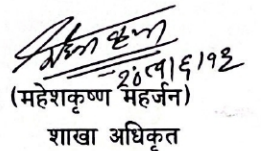 २०७५।६।१३
(महेशकृष्ण महर्जन)
शाखा अधिकृत